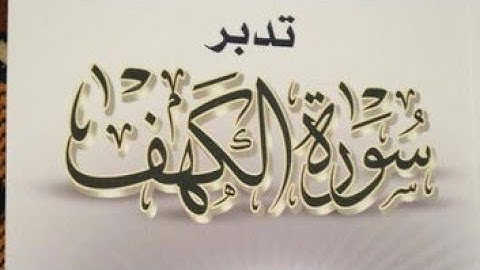 تدبر
سُورَة الكهف